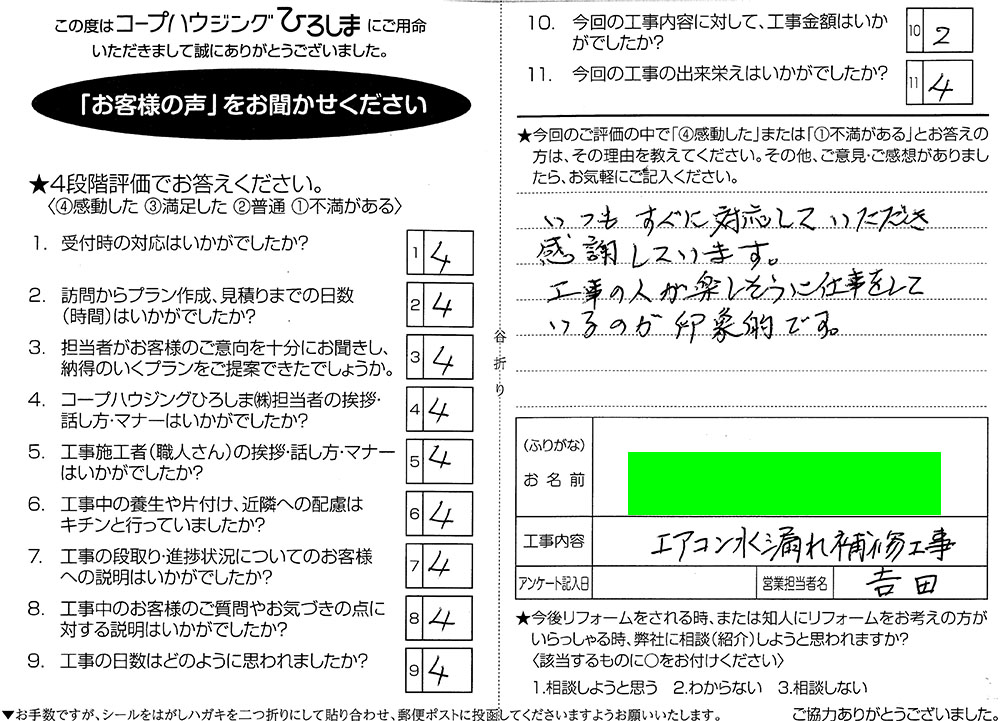 この度はコープハウジングひろしまにご用命
いただきまして誠にありがとうございました。
「お客様の声」をお聞かせください
★4段階評価でお答えください。
〈④感動した ③満足した ②普通 ①不満がある〉
1. 受付時の対応はいかがでしたか? 1 4
2. 訪問からプラン作成、見積りまでの日数
(時間)はいかがでしたか? 2 4
3. 担当者がお客様のご意向を十分にお聞きし、
納得のいくプランをご提案できたでしょうか。 3 4
4. コープハウジングひろしま㈱担当者の挨拶・
話し方・マナーはいかがでしたか? 4 4
5. 工事施工者(職人さん)の挨拶・話し方・マナー
はいかがでしたか? 5 4
6. 工事中の養生や片付け、近隣への配慮は
キチンと行っていましたか? 6 4
7. 工事の段取り・進捗状況についてのお客様
への説明はいかがでしたか? 7 4
8. 工事中のお客様のご質問やお気づきの点に
対する説明はいかがでしたか? 8 4
9. 工事の日数はどのように思われましたか? 9 4
谷折り
10. 今回の工事内容に対して、工事金額はいか
がでしたか? 10 2
11. 今回の工事の出来栄えはいかがでしたか? 11 4
★今回のご評価の中で「④感動した」または「①不満がある」とお答えの
方は、その理由を教えてください。その他、ご意見・ご感想がありまし
たら、お気軽にご記入ください。
いつも すぐに 対応して いただき
感謝しています。
工事の人が楽しそうに仕事をして
いるのが 印象的です。
(ふりがな)
お名前
工事内容 エアコン水漏れ補修工事
アンケート記入日 営業担当者名 吉田
★今後リフォームをされる時、または知人にリフォームをお考えの方が
いらっしゃる時、弊社に相談(紹介)しようと思われますか?
〈該当するものに○をお付けください〉
1.相談しようと思う 2.わからない 3.相談しない
▼お手数ですが、シールをはがしハガキを二つ折りにして貼り合わせ、郵便ポストに投函してくださいますようお願いいたします。 ご協力ありがとうございました。